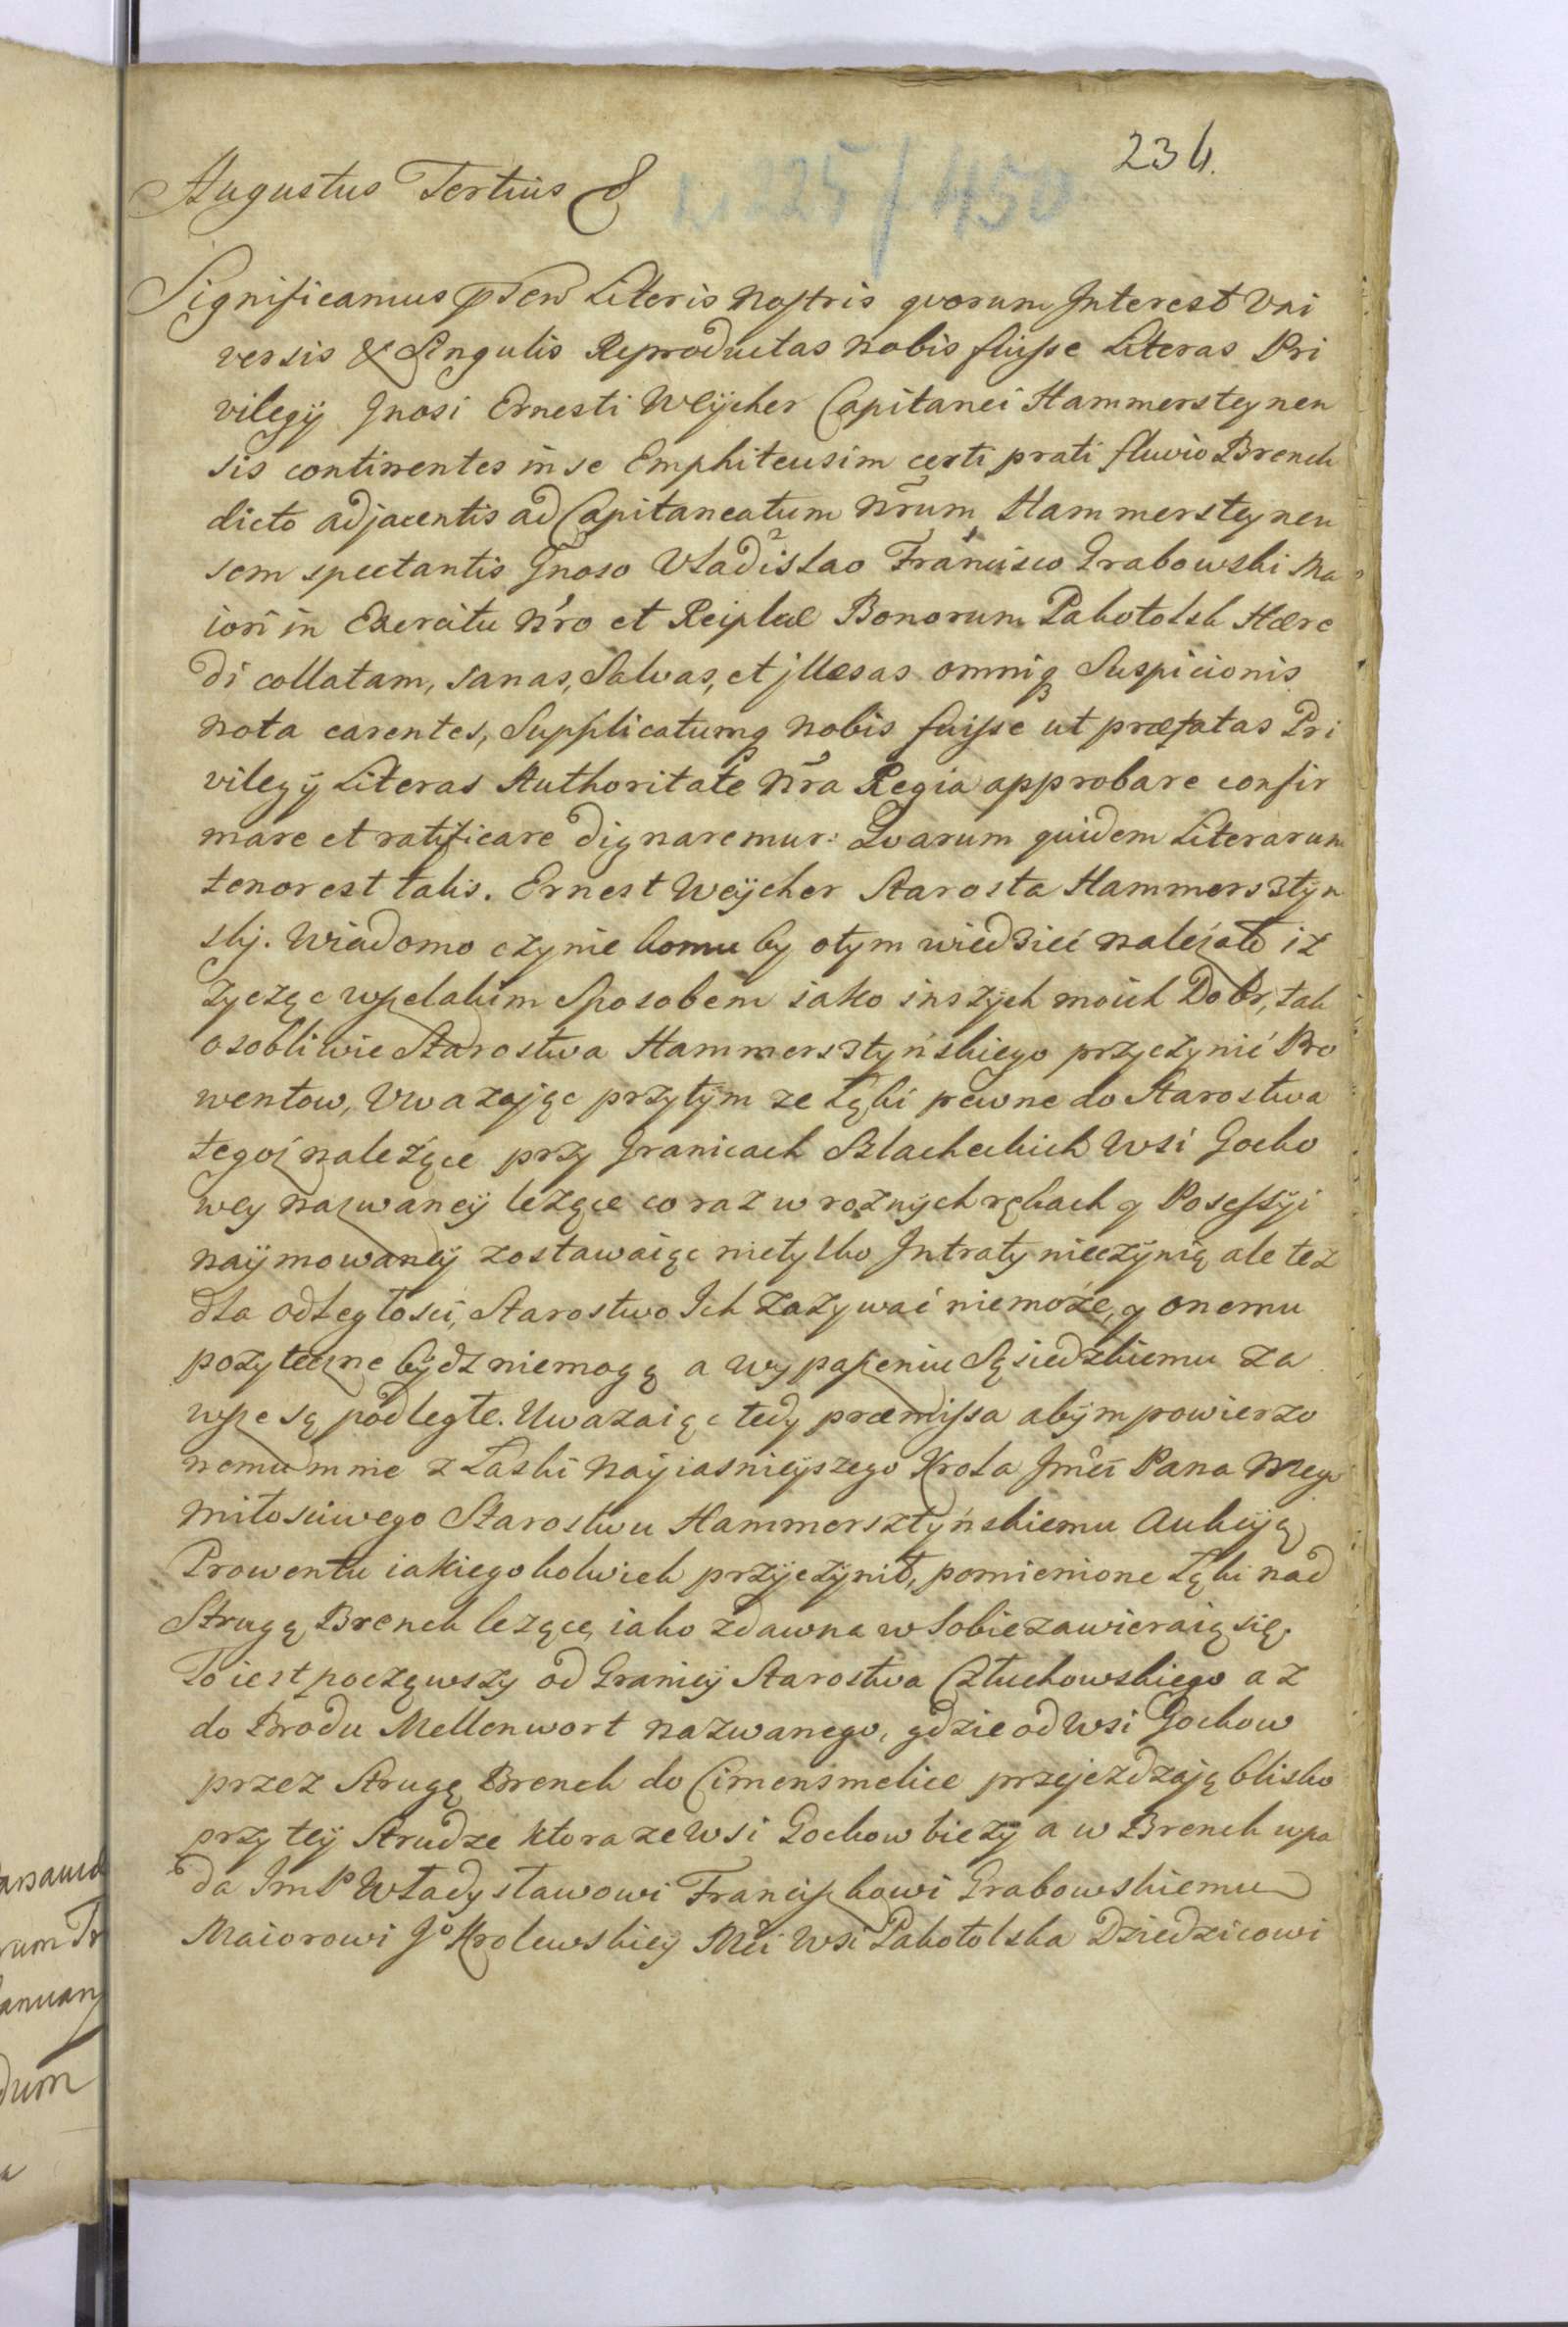 234.
L. 225/450
Augustus Tertius &
Significamus pnten Literis Nostris quorum Interest Uni
versis & Singulis Reproductas Nobis fuisse Literas Pri
vilegÿ Gnosi Ernesti Weÿcher Capitanei Hammersteynen
sis continentes in se Emphiteusim certi prati fluvio Brenck
dicto adjacentis ad Capitaneatum Nrum Hammersteynen
sem spectantis Gnoso Vladislao Francisco Grabowski Ma
iori in Exercitu Nro et Reiplae Bonorum Pakotolsk Hære
di collatam, sanas, Salvas, et jllesas omniq Suspicionis
nota carentes, Supplicatumq Nobis fuisse ut præfatas Pri
vilegÿ Literas Authoritate Nra Regia approbare confir
mare et ratificare dignaremur: Quarum quidem Literarum
tenor est talis. Ernest Weÿcher Starosta Hammersztyn
skj. Wiadomo czynie komu by otym wiedzieć należało iż
życzęc wszelakim Sposobem iako inszych moich Dobr, tak
osobliwie Starostwa Hammersztyńskiego przyczynić Pro
wentow, Uwazaięc przytym ze Łęki pewne do Starostwa
tegoż należęce przy Granicach Szlacheckich Wsi Gocko
wey nazwaneÿ lezęce co raz w roznych rękach y Possessÿi
naÿmowaneÿ zostawaięc nietylko Intraty nieczynię ale tez
dla odległosci, Starostwo Ich Zazywać niemoże, y onemu
pozyteczne bÿdz niemogę a wypaszeniu Sęsiedzkiemu za
wsze są podległe. Uwazaięc tedy præmissa abÿm powierzo
nemu mnie z Łaski Naÿiasnieÿszego Krola Jmci Pana mego
miłosciwego Starostwu Hammersztyńskiemu Aukcÿę
Prowentu iakiegokolwiek przÿczÿnił, pomienione Łęki nad
Strugą Brenck lezęce, iako zdawna w Sobie zawieraią się.
To iest poczęwszy od Granicÿ Starostwa Człuchowskiego az
do Brodu Mellenwort nazwanego, gdzie od Wsi Gockow
przez Strugę Brenck do Cimensmelice przejezdzaję blisko
przy teÿ Strudze ktora ze Wsi Gockow bieży a w Brenck wpa
da Jm P Władysławowi Franciszkowi Grabowskiemu
Maiorowi Jo Krolewskieÿ Mci Wsi Pakotolska Dziedzicowi